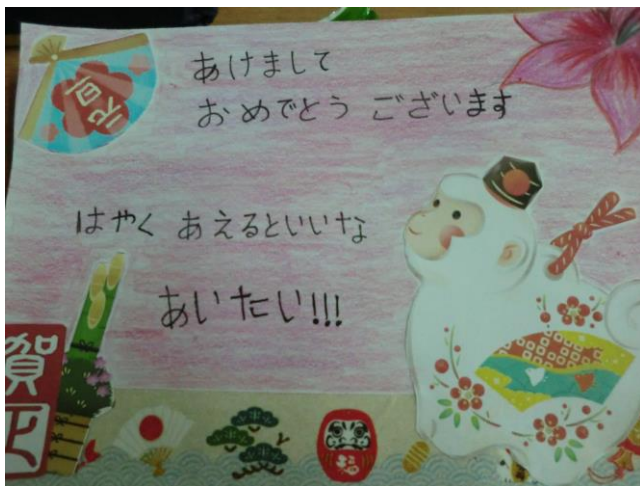 元旦
あけまして
おめでとう ございます
はやく あえるといいな
あいたい!!!
賀正
福